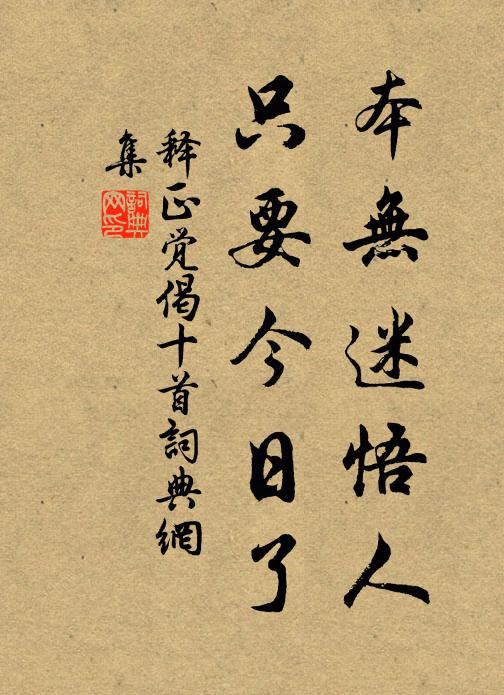 本無迷悟人
只要今日了
释正覚偈十首詞典網
集
詞典网印